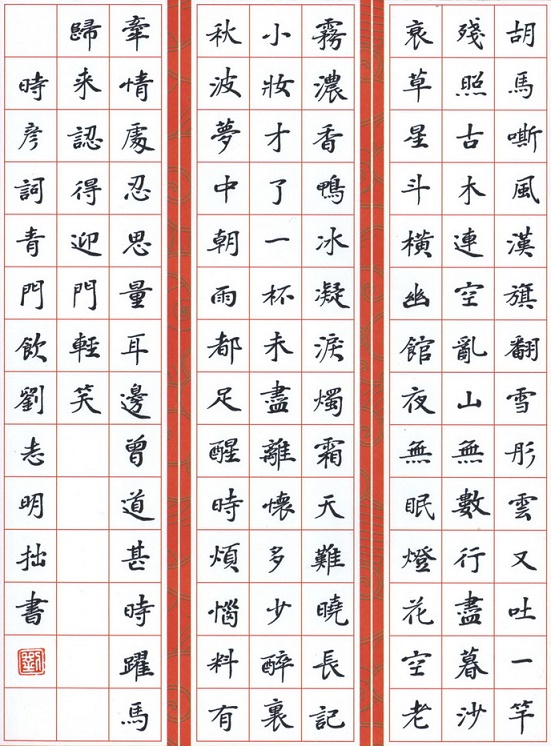 胡馬嘶風漢旗翻雪彤雲又吐一竿
殘照古木連空亂山無數行盡暮沙
衰草星斗橫幽館夜無眠燈花空老
霧濃香鴨冰凝淚燭霜天難曉長記
小妝才了一杯未盡離懷多少醉裏
秋波夢中朝雨都足醒時煩惱料有
牽情處忍思量耳邊曾道甚時躍馬
歸来認得迎門輕笑
時彥詞青門飲劉志明拙書
劉